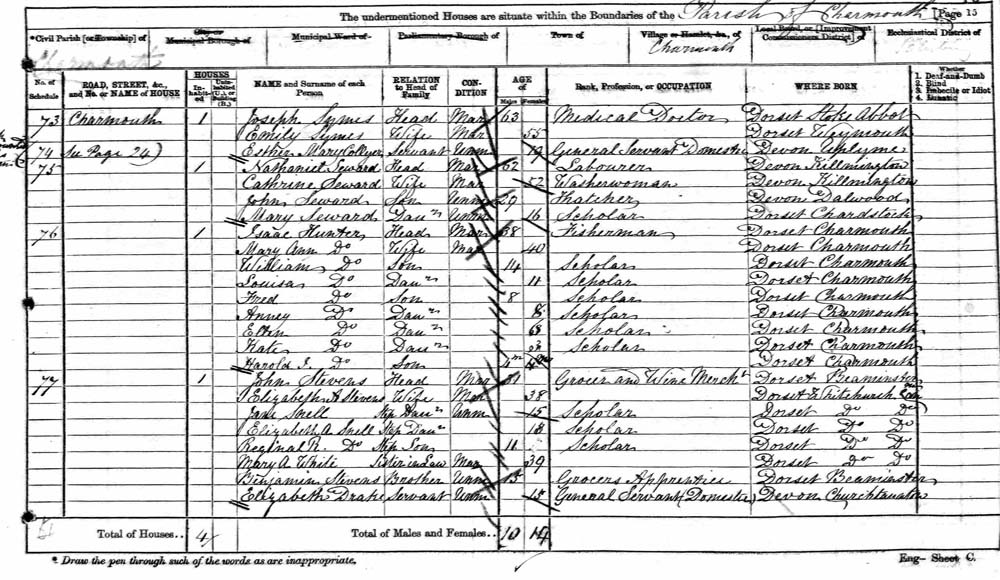 The undermentioned Houses are situate within the Boundaries of the Parish of Charmouth [Page 15
*Civil Parish [or Township] of City or Municipal Borough of Municipal Ward of Parliamentary Borough of Town of Village or Hamlet, &c., of Local Board, or [Improvement Commissioners District] of Ecclesiastical District of
Charmouth Charmouth
No. of Schedule ROAD, STREET, &c., and No. or NAME of HOUSE HOUSES Inhabited Uninhabited (U.), or Building (B.) NAME and Surname of each Person RELATION to Head of Family CONDITION AGE of Males Females Rank, Profession, or OCCUPATION WHERE BORN Whether 1. Deaf-and-Dumb 2. Blind 3. Imbecile or Idiot 4. Lunatic
73 Charmouth 1 Joseph Symes Head Mar 63 Medical Doctor Dorset Stoke Abbot
Emily Symes Wife Mar 55 Dorset Weymouth
74 See Page 24) Esther Mary Collyer Servant Unm 19 General Servant Domestic Devon Uplyme
75 1 Nathaniel Seward Head Mar 52 Labourer Devon Killmington
Cathrine Seward Wife Mar 52 Washerwoman Devon Killmington
John Seward Son Unm 29 Thatcher Devon Dalwood
Mary Seward Daur Unm 16 Scholar Dorset Chardstock
76 1 Isaac Hunter Head Mar 38 Fisherman Dorset Charmouth
Mary Ann Do Wife Mar 40 Dorset Charmouth
William Do Son 14 Scholar Dorset Charmouth
Louisa Do Daur 11 Scholar Dorset Charmouth
Fred Do Son 8 Scholar Dorset Charmouth
Anney Do Daur 8 Scholar Dorset Charmouth
Ellen Do Daur Scholar Dorset Charmouth
Kate Do Daur Scholar Dorset Charmouth
Harold J. Do Son Dorset Charmouth
77 1 John Stevens Head Mar Grocer and Wine Mercht Dorset Beaminster
Elizabeth A Stevens Wife Mar 38 Dorset Whitchurch
Jane Snell Step Daur Unm 15 Scholar Dorset Do Do
Elizabeth A. Snell Step Daur 18 Scholar Dorset Do Do
Reginal R. Do Step Son 11 Scholar Dorset Do Do
Mary A White Sister in Law Mar 39 Dorset Do Do
Benjamin Stevens Brother Unm 15 Grocers Apprentice Dorset Beaminster
Elizabeth Drake Servant Unm 15 General Servant (Domestic) Devon
Total of Houses.. 4 Total of Males and Females.. 10 14
* Draw the pen through such of the words as are inappropriate. Eng— Sheet C.